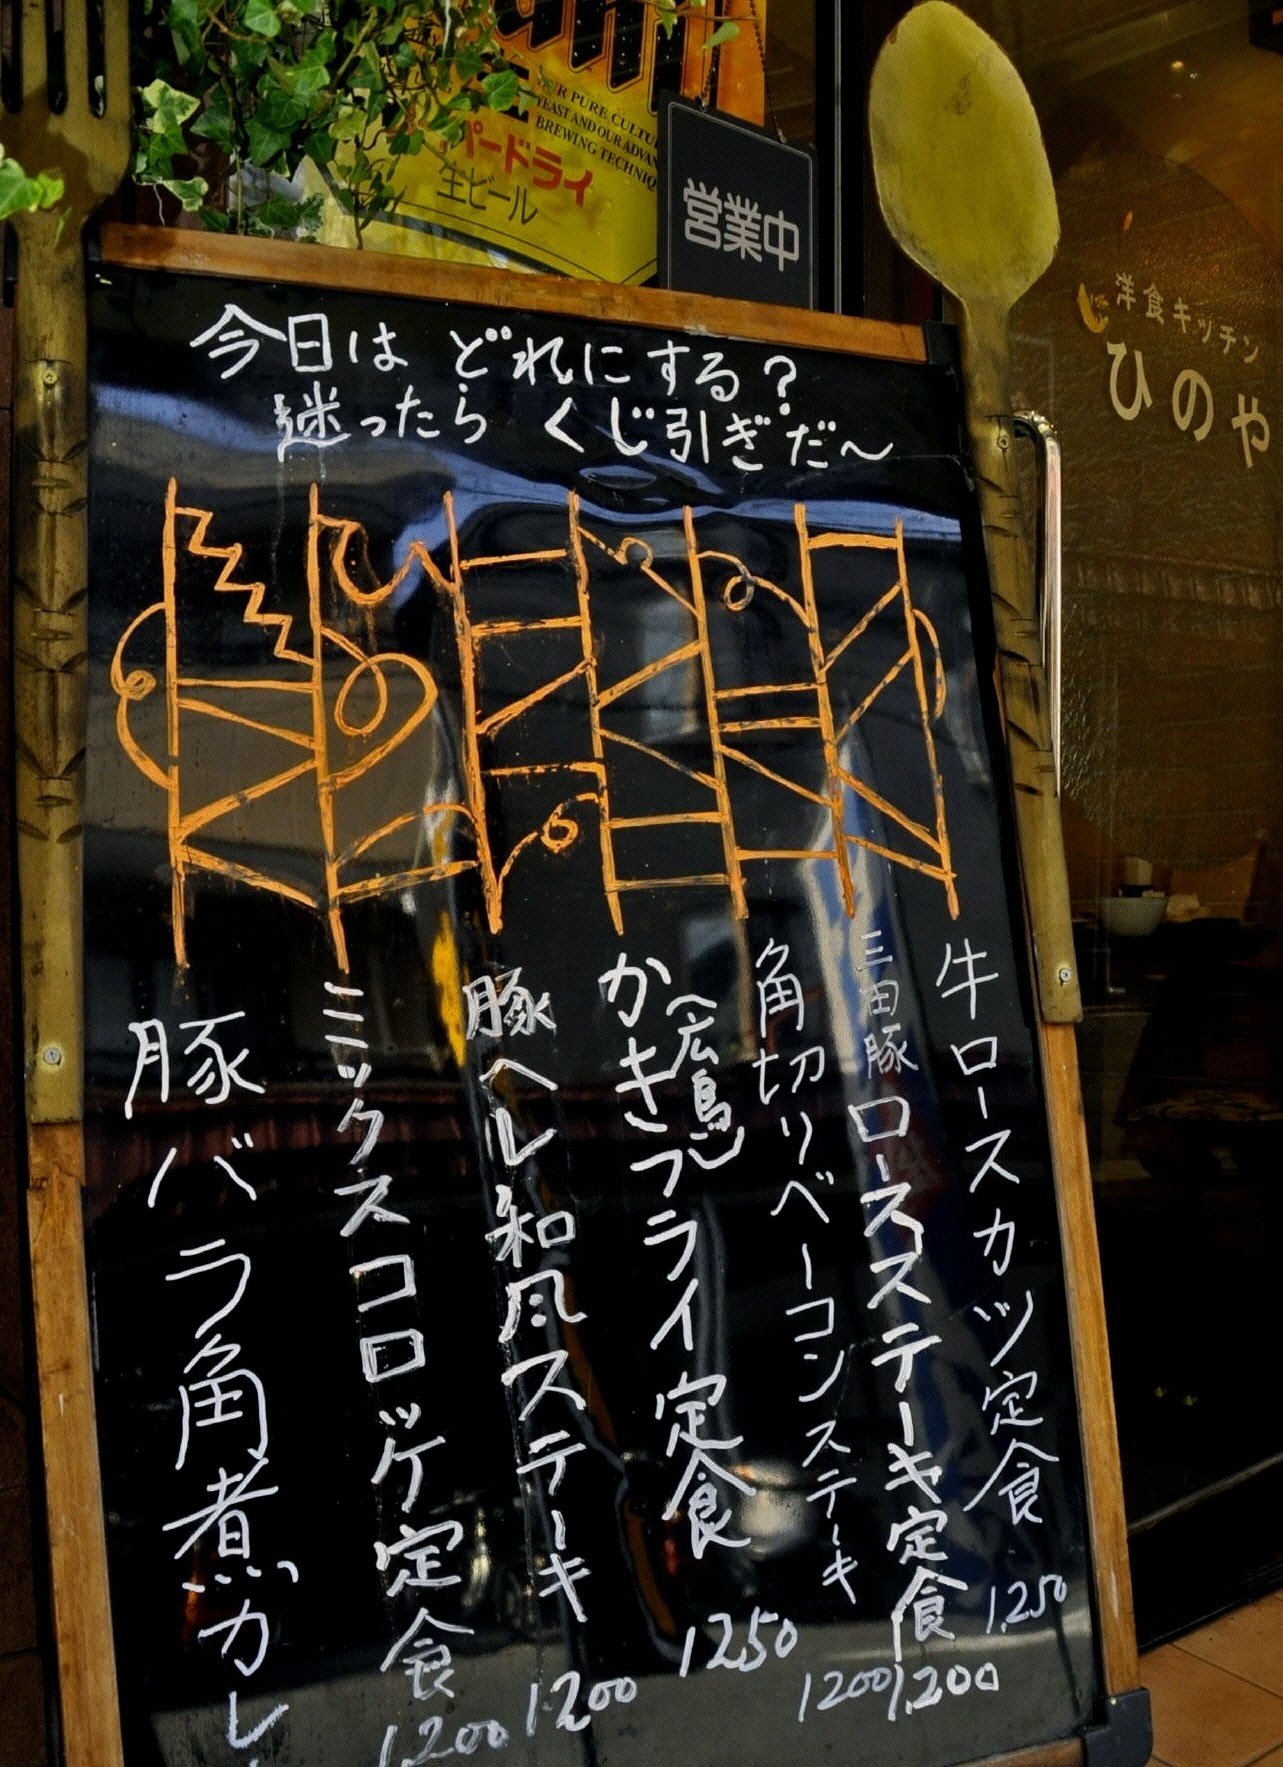 OUR PURE CULTU
YEAST AND OUR ADVAN
BREWING TECHNIQ
パードライ
生ビール
営業中
洋食キッチン
ひのや
今日は どれにする?
迷ったら くじ引ぎだ〜
牛ロースカツ定食 1,250
三田豚ロースステーキ定食 1,200
角切りベーコンステーキ 1200
かきフライ定食 1250
(広島)
豚ヘレ和風ステーキ 1,200
ミックスコロッケ定食 1,200
豚バラ角煮カレー